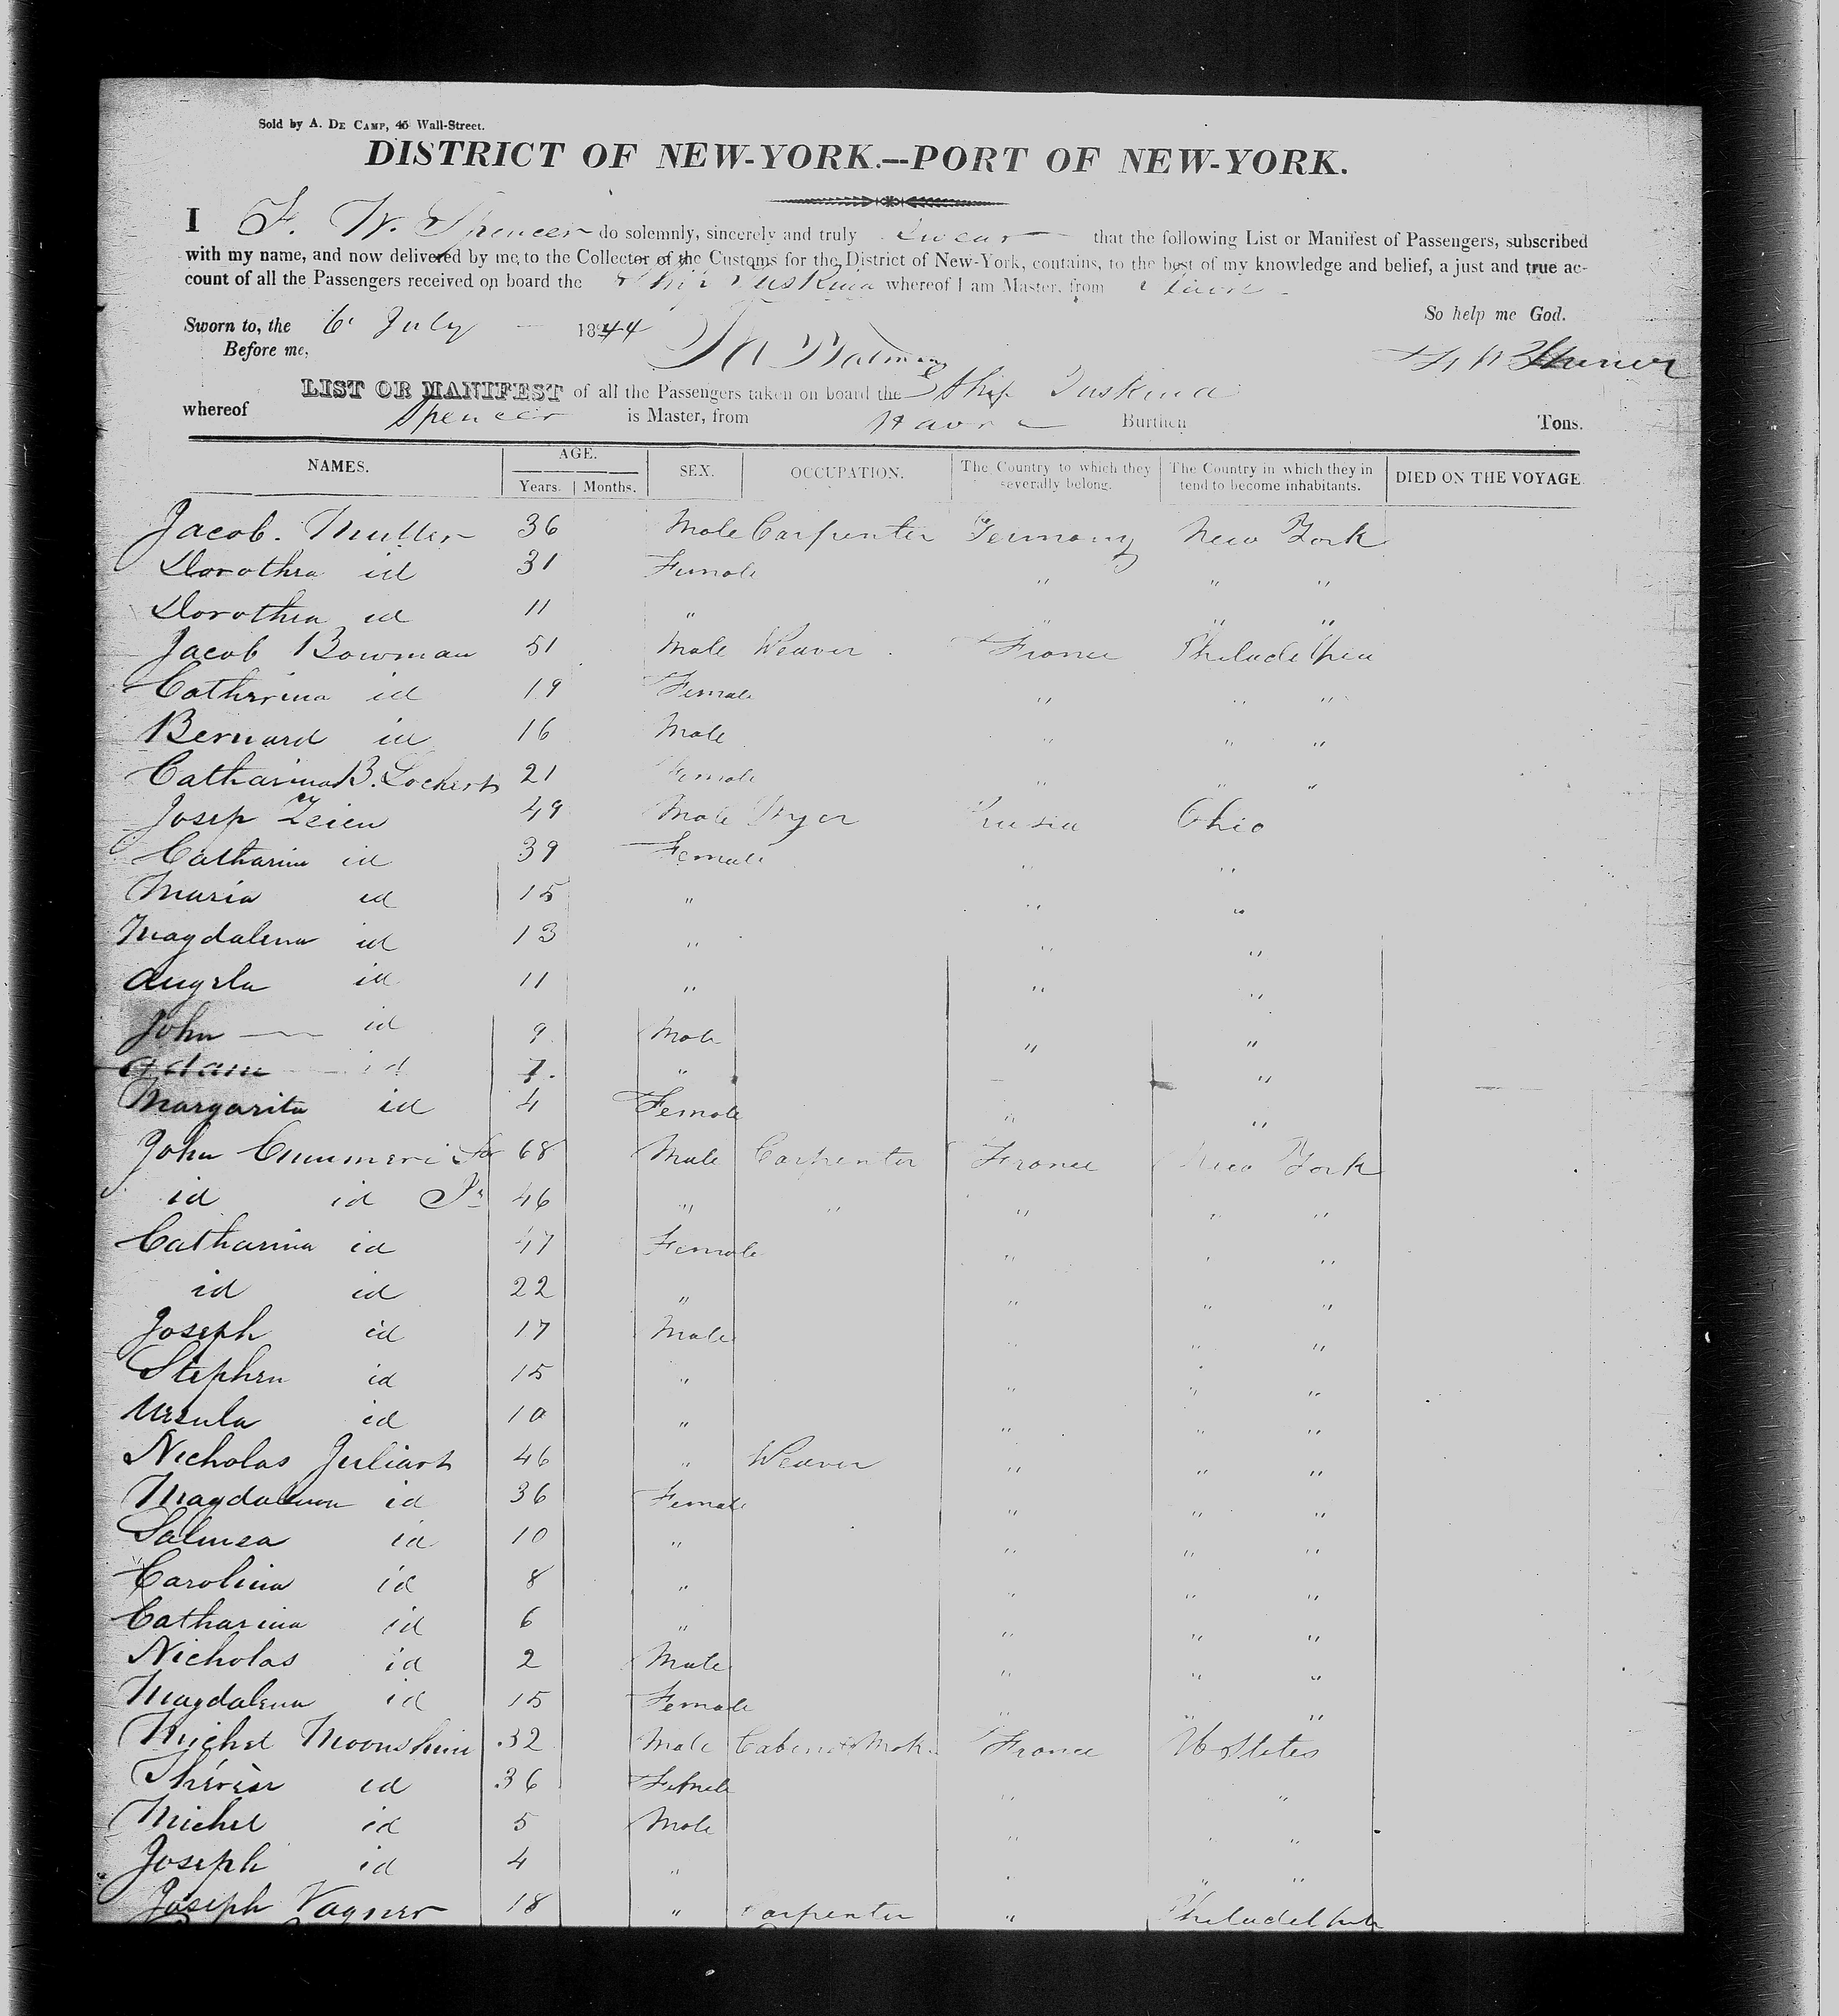 Sold by A. De Camp, 45 Wall-Street.
DISTRICT OF NEW-YORK.—PORT OF NEW-YORK.
I F. W. Spencer do solemnly, sincerely and truly Swear that the following List or Manifest of Passengers, subscribed
with my name, and now delivered by me to the Collector of the Customs for the District of New-York, contains, to the best of my knowledge and belief, a just and true ac-
count of all the Passengers received on board the Ship Tuskina whereof I am Master, from Havre
So help me God.
Sworn to, the 6 July 1844
Before me,
LIST OR MANIFEST of all the Passengers taken on board the Ship Tuskina
whereof Spencer is Master, from Havre Burthen Tons.
NAMES. AGE. Years. Months. SEX. OCCUPATION. The Country to which they severally belong. The Country in which they intend to become inhabitants. DIED ON THE VOYAGE
Jacob Muller 36 Male Carpenter Germany New York
Dorothea id 31 Female " " "
Dorothea id 11 " " " "
Jacob Bowman 51 Male Weaver France Philadelphia
Catherina id 19 Female " " "
Bernard id 16 Male " " "
Catharina B. Lockert 21 Female " " "
Josep Zeien 49 Male Dyer Prusia Ohio
Catharina id 39 Female " "
Maria id 15 " " "
Magdalena id 13 " " "
Angela id 11 " " "
John id 9 Male " "
Adam id 7 " "
Margarita id 4 Female " "
John 68 Male Carpenter France New York
id id Jr 46 " " " " "
Catharina id 47 Female " " "
id id 22 " " " "
Joseph id 17 Male " " "
Stephen id 15 " " " "
Ursula id 10 " " " "
Nicholas Juliart 46 " Weaver " " "
Magdalena id 36 Female " " "
Salmea id 10 " " " "
Carolina id 8 " " " "
Catharina id 6 " " " "
Nicholas id 2 Male " " "
Magdalena id 15 Female " " "
Michel Moonshine 32 Male Cabinet Mak. France U States
Thérèse id 36 Female " "
Michel id 5 Male " "
Joseph id 4 " " "
Joseph Vagner 18 " Carpenter " Philadelphia